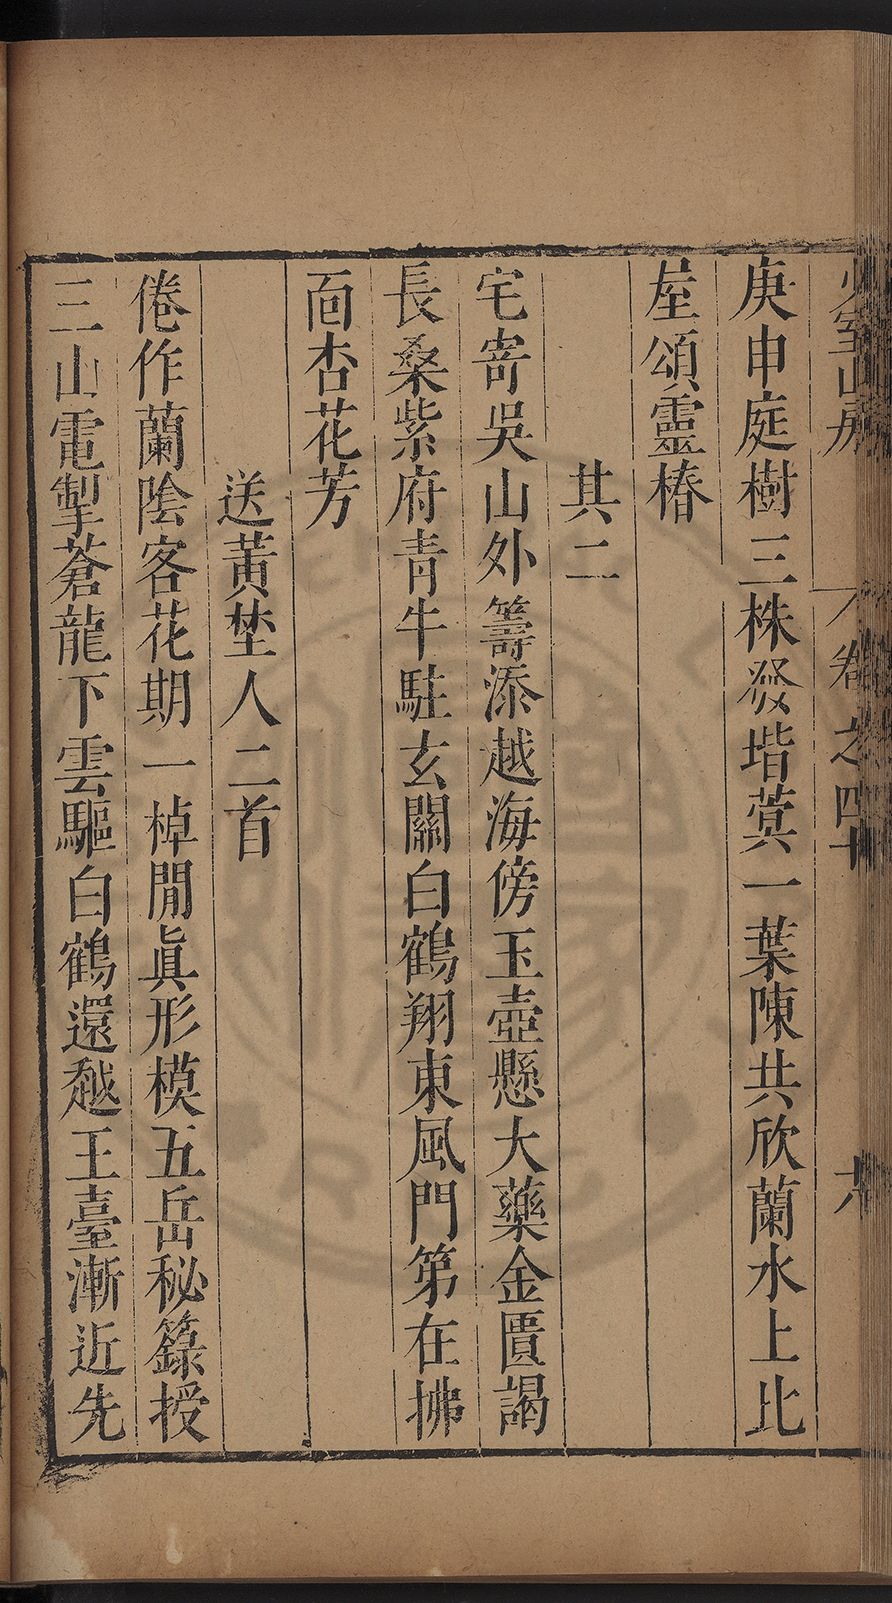 少室山房 卷之四十 六
庚申庭樹三株發堦蓂一葉陳共欣蘭水上比
屋頌靈椿
其二
宅寄吳山外籌添越海傍玉壺懸大藥金匱謁
長桑紫府青牛駐玄關白鶴翔東風門第在拂
面杏花芳
送黃埜人二首
倦作蘭陰客花期一棹閒眞形模五岳秘籙授
三山電掣蒼龍下雲驅白鶴還越王臺漸近先